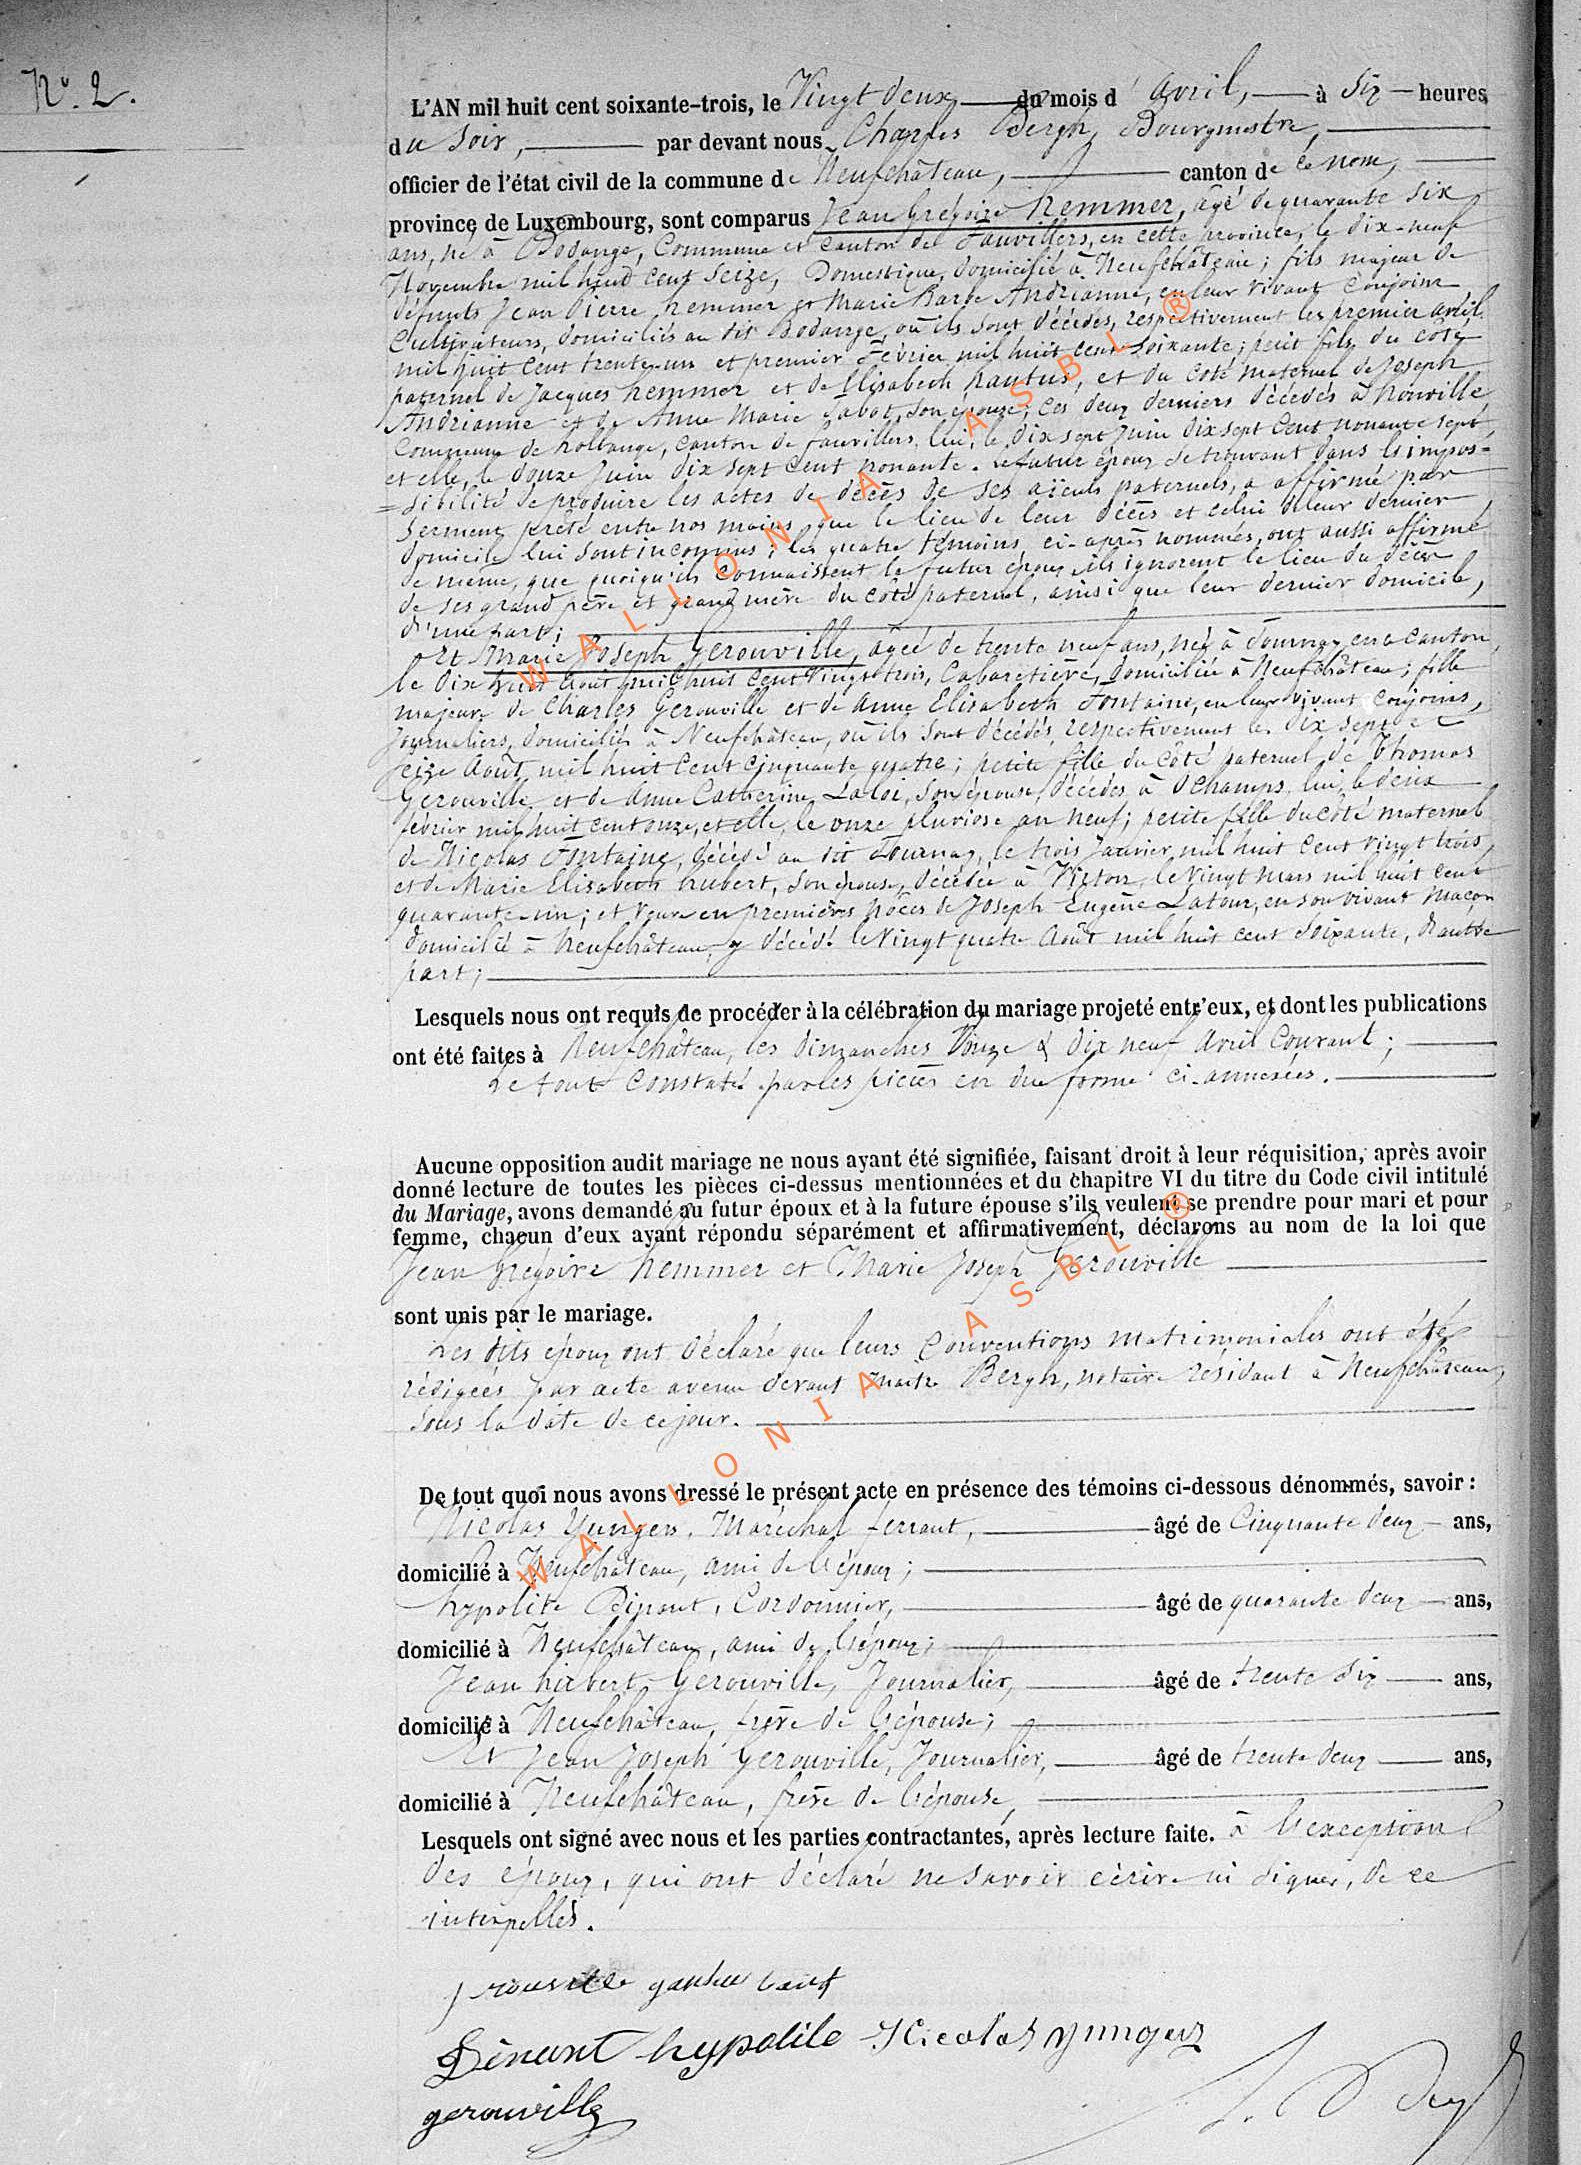 N° 2.
L'AN mil huit cent soixante-trois, le Vingt deux du mois d'avril, à Six heures
du Soir, par devant nous Charles Bergh, Bourgmestre,
officier de l'état civil de la commune de Neufchâteau, canton de ce nom,
province de Luxembourg, sont comparus Jean Grégoire hemmer, âgé de quarante six
ans, né à Bodange, Commune et canton de Fauvillers, en cette province, le dix-neuf
Novembre mil huit cent Seize, Domestique, domicilié à Neufchâteau; fils majeur de
défunts Jean Pierre hemmer et Marie Barbe Andrianne, en leur vivant Conjoins
Cultivateurs, domiciliés au dit Bodange, où ils sont décédés, respectivement les premier avril
mil huit cent trente-un et premier Février mil huit cent Soixante; petit fils du côté
paternel de Jacques hemmer et de Elisabeth hautus, et du côté maternel de Joseph
Andrianne et de Anne Marie Sabat, son épouse; ces deux derniers décédés à honville
Commune de hollange, canton de fauvillers, lui, le dix sept Juin dix sept Cent nonante sept,
et elle, le douze Juin dix sept cent nonante. Le futur époux se trouvant dans l'impos=
=sibilité de produire les actes de décès de ses aïeuls paternels, a affirmé par
Serment prêté entre nos mains que le lieu de leur décès et celui de leur dernier
domicile lui sont inconnus; les quatre témoins, ci-après nommés, ont aussi affirmé
de même, que quoiqu'ils connaissent le futur époux, ils ignorent le lieu du décès
de ses grand père et grand mère du côté paternel, ainsi que leur dernier domicile,
d'une part;
Et Marie Joseph Gerouville, âgée de trente neuf ans, née à Tournay en ce canton,
le dix huit août mil huit cent Vingt trois, Cabaretière, domiciliée à Neufchâteau; fille
majeure de Charles Gerouville et de Anne Elisabeth Fontaine, en leur vivant conjoins,
Journaliers, domiciliés à Neufchâteau, où ils sont décédés, respectivement les dix sept et
Seize Août mil huit Cent Cinquante quatre; petite fille du côté paternel de Thomas
Gerouville et de Anne Catherine Laloi, son épouse, décédés à Ochamps, lui, le deux
février mil huit cent onze, et elle, le onze pluviose an neuf; petite fille du côté maternel
de Nicolas Fontaine, décédé au dit Tournay, le trois Janvier mil huit Cent vingt trois,
et de Marie Elisabeth hubert, son épouse, décédée à Virton, le Vingt mars mil huit cent
quarante-un; et veuve en premières nôces de Joseph Eugène Latour, en son vivant maçon
domicilié à Neufchâteau, y décédé le Vingt quatre Août mil huit cent Soixante, d'autre
part;
Lesquels nous ont requis de procéder à la célébration du mariage projeté entr'eux, et dont les publications
ont été faites à Neufchâteau, les dimanches Douze & dix neuf Avril Courant;
Le tout Constaté par les pièces en due forme ci-annexées.
Aucune opposition audit mariage ne nous ayant été signifiée, faisant droit à leur réquisition, après avoir
donné lecture de toutes les pièces ci-dessus mentionnées et du chapitre VI du titre du Code civil intitulé
du Mariage, avons demandé au futur époux et à la future épouse s'ils veulent se prendre pour mari et pour
femme, chacun d'eux ayant répondu séparément et affirmativement, déclarons au nom de la loi que
Jean Grégoire hemmer et Marie Joseph Gerouville
sont unis par le mariage.
Les dits époux ont déclaré que leurs Conventions matrimoniales ont été
rédigées par acte avenu devant maître Bergh, notaire résidant à Neufchâteau,
Sous la date de ce jour.
De tout quoi nous avons dressé le présent acte en présence des témoins ci-dessous dénommés, savoir :
Nicolas Yungers, Maréchal ferrant, âgé de Cinquante deux ans,
domicilié à Neufchâteau, ami de l'époux;
hypolite Dinant, Cordonnier, âgé de quarante deux ans,
domicilié à Neufchâteau, ami de l'époux;
Jean hubert Gerouville, Journalier, âgé de trente six ans,
domicilié à Neufchâteau, frère de l'épouse;
Et Jean Joseph Gerouville, Journalier, âgé de trente deux ans,
domicilié à Neufchâteau, frère de l'épouse,
Lesquels ont signé avec nous et les parties contractantes, après lecture faite. à l'exception
des époux, qui ont déclaré ne savoir écrire ni signer, de ce
interpellés.
Dinant hypolite Nicolas yungers
gerouville
WALLONIA ASBL ®
WALLONIA ASBL ®